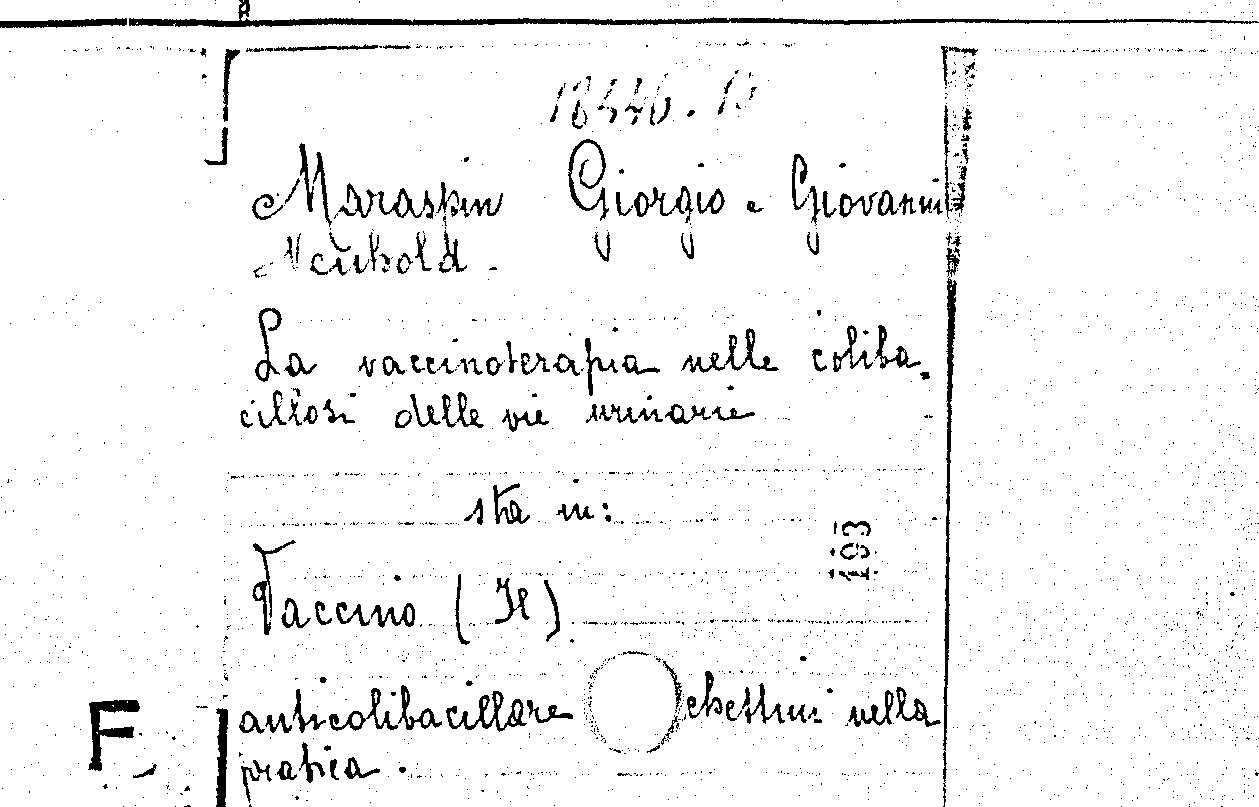 18446.10
Maraspin Giorgio e Giovanni
Neubold.
La vaccinoterapia nelle coliba-
cillosi delle vie urinarie
sta in:
193
Vaccino (Il)
anticolibacillare chettini nella
pratica.
F